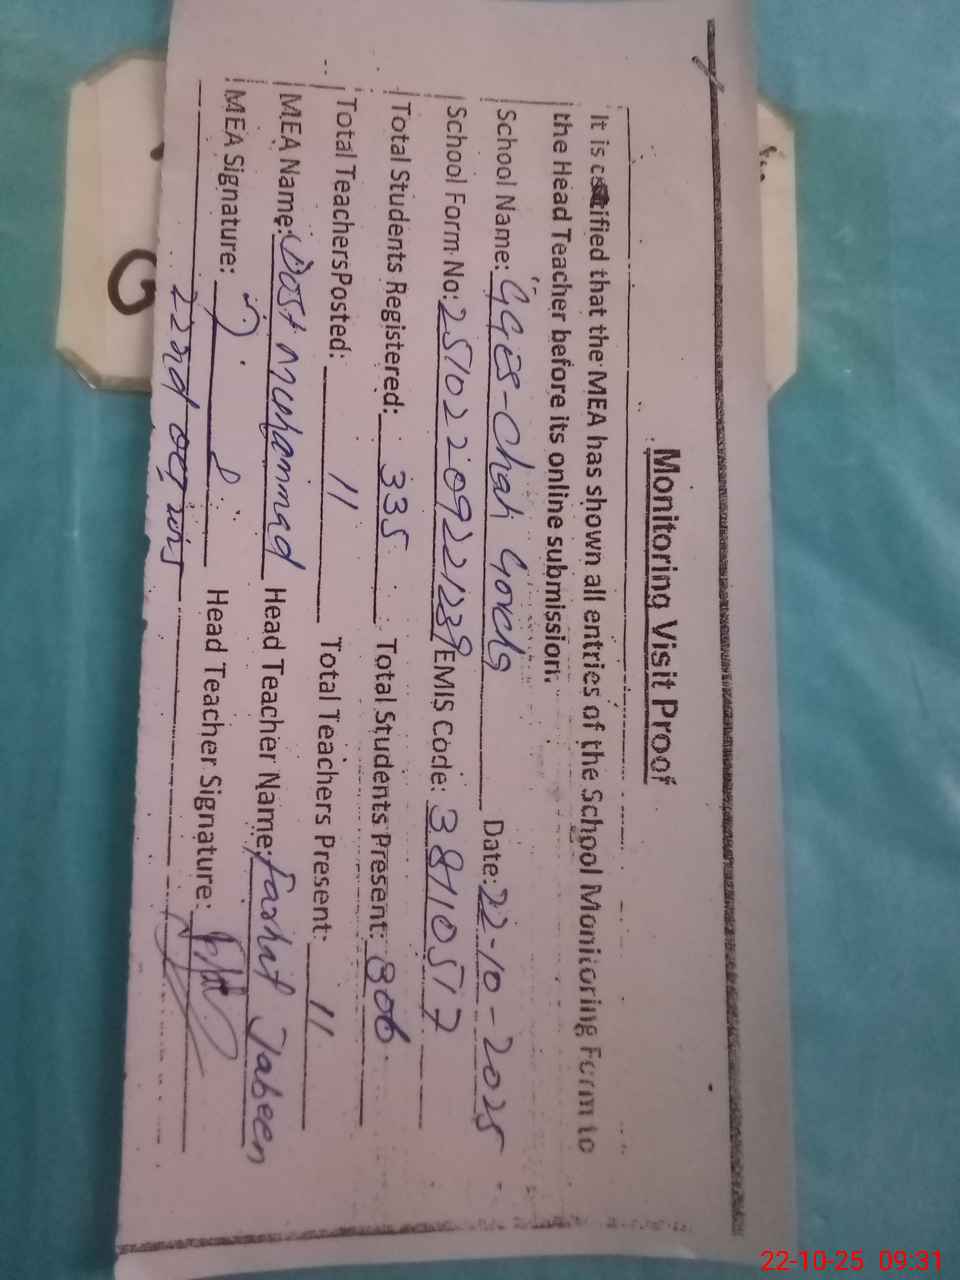 Monitoring Visit Proof
It is certified that the MEA has shown all entries of the School Monitoring Form to
the Head Teacher before its online submission.
School Name: GGES-Chak Date: 22-10-2025
School Form No: EMIS Code: 38110517
Total Students Registered: 335 Total Students Present: 306
Total Teachers Posted: 11 Total Teachers Present: 11
MEA Name: Dost Muhammad Head Teacher Name: Farhat Jabeen
MEA Signature: Head Teacher Signature:
22nd Oct 2025
G
22-10-25 09:31